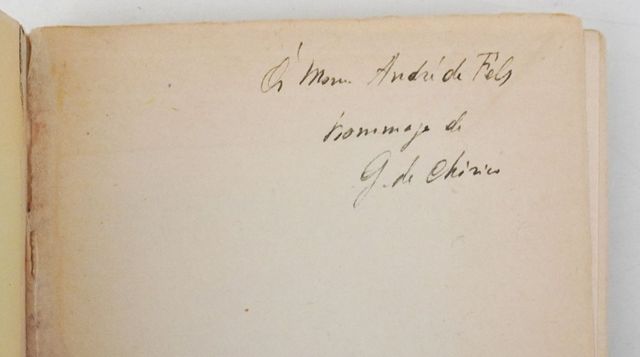 À Mons. André de Fels
hommage de
G. de Chirico